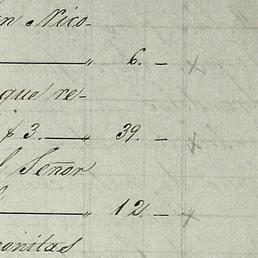 n Nico-
" 6. -
que re-
$ 3. " 39. -
l Señor
" 12. -
onitas